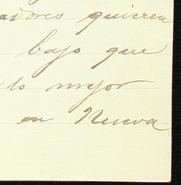 adores quieren
bajo que
lo mejor
en Nueva